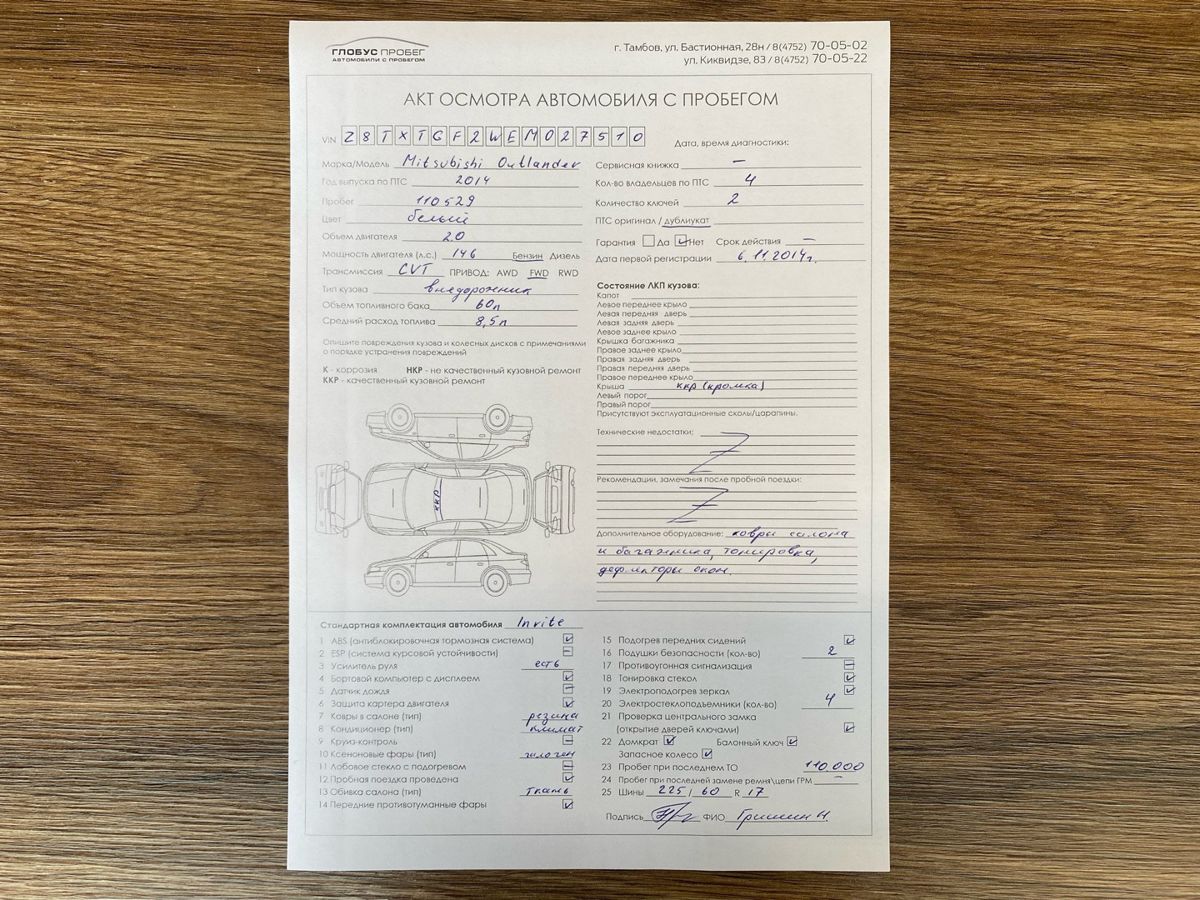 ГЛОБУС ПРОБЕГ
АВТОМОБИЛИ С ПРОБЕГОМ
г. Тамбов, ул. Бастионная, 28н / 8(4752) 70-05-02
ул. Киквидзе, 83 / 8(4752) 70-05-22
АКТ ОСМОТРА АВТОМОБИЛЯ С ПРОБЕГОМ
VIN Z8TXTGF2WEM027510
Дата, время диагностики:
Марка/Модель Mitsubishi Outlander
Год выпуска по ПТС 2014
Пробег 110529
Цвет белый
Объем двигателя 2.0
Мощность двигателя (л.с.) 146 Бензин Дизель
Трансмиссия CVT ПРИВОД: AWD FWD RWD
Тип кузова внедорожник
Объем топливного бака 60л
Средний расход топлива 8,5л
Сервисная книжка –
Кол-во владельцев по ПТС 4
Количество ключей 2
ПТС оригинал / дубликат
Гарантия Да Нет Срок действия –
Дата первой регистрации 6.11.2014г.
Опишите повреждения кузова и колесных дисков с примечаниями
о порядке устранения повреждений
К - коррозия НКР - не качественный кузовной ремонт
ККР - качественный кузовной ремонт
ККР
Состояние ЛКП кузова:
Капот
Левое переднее крыло
Левая передняя дверь
Левая задняя дверь
Левое заднее крыло
Крышка багажника
Правое заднее крыло
Правая задняя дверь
Правая передняя дверь
Правое переднее крыло
Крыша ккр (кромка)
Левый порог
Правый порог
Присутствуют эксплуатационные сколы/царапины.
Технические недостатки:
Рекомендации, замечания после пробной поездки:
Дополнительное оборудование: ковры салона
и багажника, тонировка,
дефлекторы окон.
Стандартная комплектация автомобиля Invite
1 ABS (антиблокировочная тормозная система)
2 ESP (система курсовой устойчивости) –
3 Усилитель руля есть
4 Бортовой компьютер с дисплеем
5 Датчик дождя –
6 Защита картера двигателя
7 Ковры в салоне (тип) резина
8 Кондиционер (тип) климат
9 Круиз-контроль –
10 Ксеноновые фары (тип) галоген
11 Лобовое стекло с подогревом –
12 Пробная поездка проведена
13 Обивка салона (тип) ткань
14 Передние противотуманные фары
15 Подогрев передних сидений
16 Подушки безопасности (кол-во) 2
17 Противоугонная сигнализация –
18 Тонировка стекол
19 Электроподогрев зеркал
20 Электростеклоподъемники (кол-во) 4
21 Проверка центрального замка
(открытие дверей ключами)
22 Домкрат Балонный ключ
Запасное колесо
23 Пробег при последнем ТО 110.000
24 Пробег при последней замене ремня\цепи ГРМ –
25 Шины 225 / 60 R 17
Подпись ФИО Гришин Н.